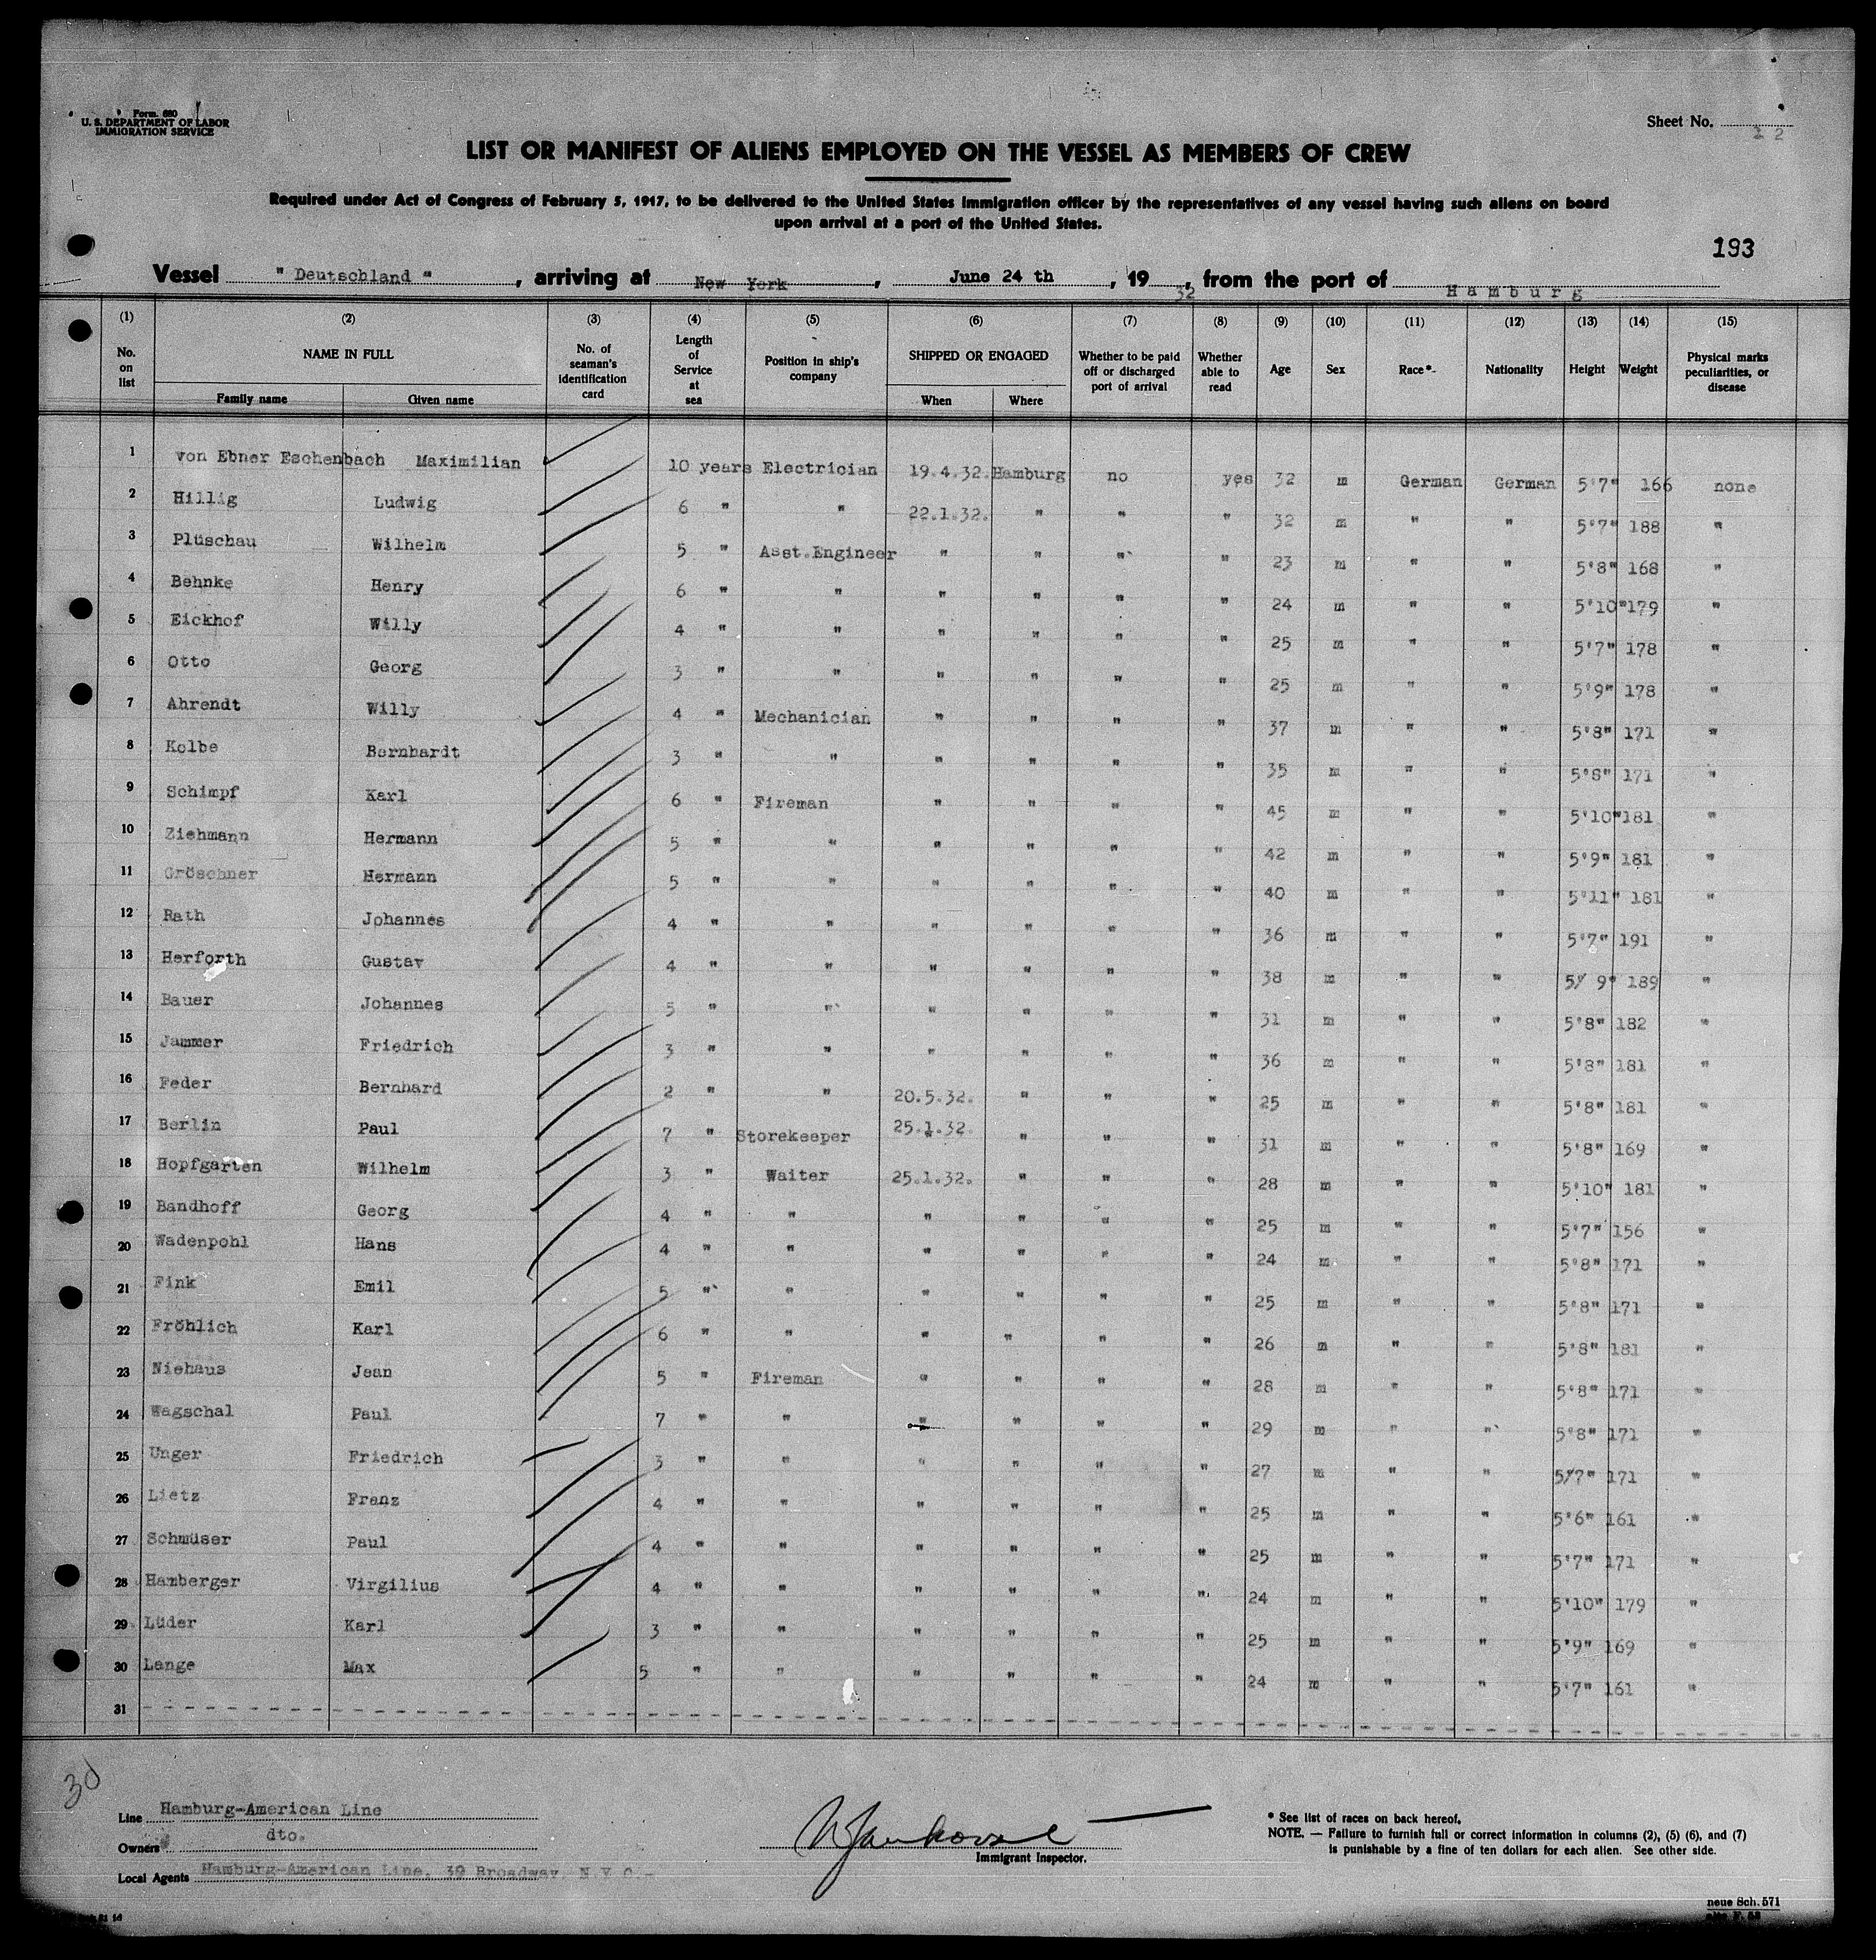 Form. 680
U. S. DEPARTMENT OF LABOR
IMMIGRATION SERVICE
Sheet No. 12
LIST OR MANIFEST OF ALIENS EMPLOYED ON THE VESSEL AS MEMBERS OF CREW
Required under Act of Congress of February 5, 1917, to be delivered to the United States Immigration officer by the representatives of any vessel having such aliens on board
upon arrival at a port of the United States.
193
Vessel " Deutschland ", arriving at New York, June 24 th, 1932, from the port of Hamburg
(1) (2) (3) (4) (5) (6) (7) (8) (9) (10) (11) (12) (13) (14) (15)
No. on list NAME IN FULL Family name Given name No. of seaman's identification card Length of Service at sea Position in ship's company SHIPPED OR ENGAGED When Where Whether to be paid off or discharged port of arrival Whether able to read Age Sex Race*- Nationality Height Weight Physical marks peculiarities, or disease
1 von Ebner Eschenbach Maximilian 10 years Electrician 19.4.32. Hamburg no yes 32 m German German 5'7" 166 none
2 Hillig Ludwig 6 " " 22.1.32. " " " 32 m " " 5'7" 188 "
3 Plüschau Wilhelm 5 " Asst.Engineer " " " " 23 m " " 5'8" 168 "
4 Behnke Henry 6 " " " " " " 24 m " " 5'10" 179 "
5 Eickhof Willy 4 " " " " " " 25 m " " 5'7" 178 "
6 Otto Georg 3 " " " " " " 25 m " " 5'9" 178 "
7 Ahrendt Willy 4 " Mechanician " " " " 37 m " " 5'8" 171 "
8 Kolbe Bernhardt 3 " " " " " " 35 m " " 5'8" 171 "
9 Schimpf Karl 6 " Fireman " " " " 45 m " " 5'10" 181 "
10 Ziehmann Hermann 5 " " " " " " 42 m " " 5'9" 181 "
11 Gröschner Hermann 5 " " " " " " 40 m " " 5'11" 181 "
12 Rath Johannes 4 " " " " " " 36 m " " 5'7" 191 "
13 Herforth Gustav 4 " " " " " " 38 m " " 5/ 9" 189 "
14 Bauer Johannes 5 " " " " " " 31 m " " 5'8" 182 "
15 Jammer Friedrich 3 " " " " " " 36 m " " 5'8" 181 "
16 Feder Bernhard 2 " " 20.5.32. " " " 25 m " " 5'8" 181 "
17 Berlin Paul 7 " Storekeeper 25.1.32. " " " 31 m " " 5'8" 169 "
18 Hopfgarten Wilhelm 3 " Waiter 25.1.32. " " " 28 m " " 5'10" 181 "
19 Bandhoff Georg 4 " " " " " " 25 m " " 5'7" 156 "
20 Wadenpohl Hans 4 " " " " " " 24 m " " 5'8" 171 "
21 Fink Emil 5 " " " " " " 25 m " " 5'8" 171 "
22 Fröhlich Karl 6 " " " " " " 26 m " " 5'8" 181 "
23 Niehaus Jean 5 " Fireman " " " " 28 m " " 5'8" 171 "
24 Wagschal Paul 7 " " " " " " 29 m " " 5'8" 171 "
25 Unger Friedrich 3 " " " " " " 27 m " " 5/7" 171 "
26 Lietz Franz 4 " " " " " " 25 m " " 5'6" 161 "
27 Schmüser Paul 4 " " " " " " 25 m " " 5'7" 171 "
28 Hamberger Virgilius 4 " " " " " " 24 m " " 5'10" 179 "
29 Lüder Karl 3 " " " " " " 25 m " " 5'9" 169 "
30 Lange Max 5 " " " " " " 24 m " " 5'7" 161 "
31
30
Line Hamburg-American Line
Owners dto.
Local Agents Hamburg-American Line, 39 Broadway, N.Y.C.-
Immigrant Inspector.
* See list of races on back hereof.
NOTE. — Failure to furnish full or correct information in columns (2), (5) (6), and (7)
is punishable by a fine of ten dollars for each alien. See other side.
neue Sch. 571